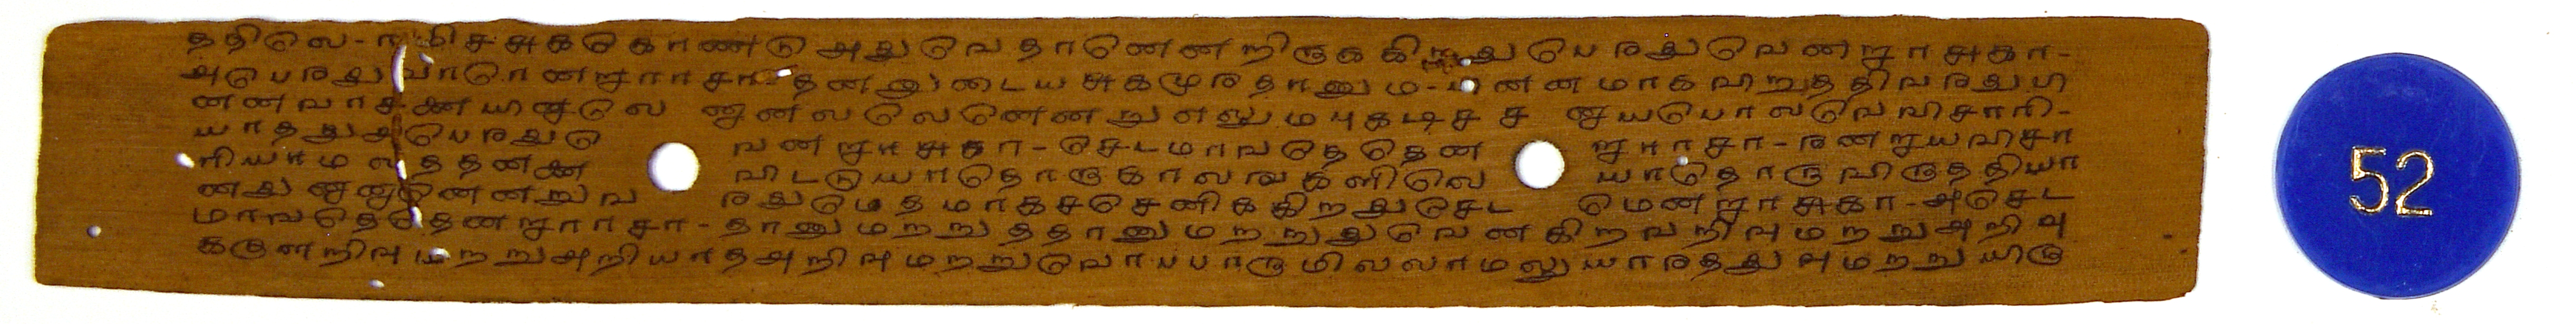 ததிலெ-ரமிசசுககெகாண்டு அதுவெதானெனறிருககிறதுபெரதுவெனறாசுகா-
அபெரதுவாரொனறாராசா-தனனுடையசுகமுரதானும-பினனமாகவிறுத்திவரதுபி
னனவாசணையினுலெ னுனலலெனெனறுஎலுமபுகடிசச னுயபொலவெவிசாரி-
யாதது அபெரதுெ வனறாசுகா-செடமாவதெதென றாராசா-ரனறுயவிசா
ரியாமலததனண விடடுயாதொருகாலஙகளிலெ யாதொருவிருததியா
னது னுனுனெனறுவ ரதுமெதமாகசசெனிககிறதுசெட மெனறாசுகா-அசெட
மாவதெதெனறாராசா-தானுமறறுததானுமறறுதுவெனகிறவறிவுமறறுஅறிவு
கருனறிவுமறறுஅறியாதஅறிவுமறறுவொயபாருமிலலாமலுயாரதததுவுமறறுயிரு
52